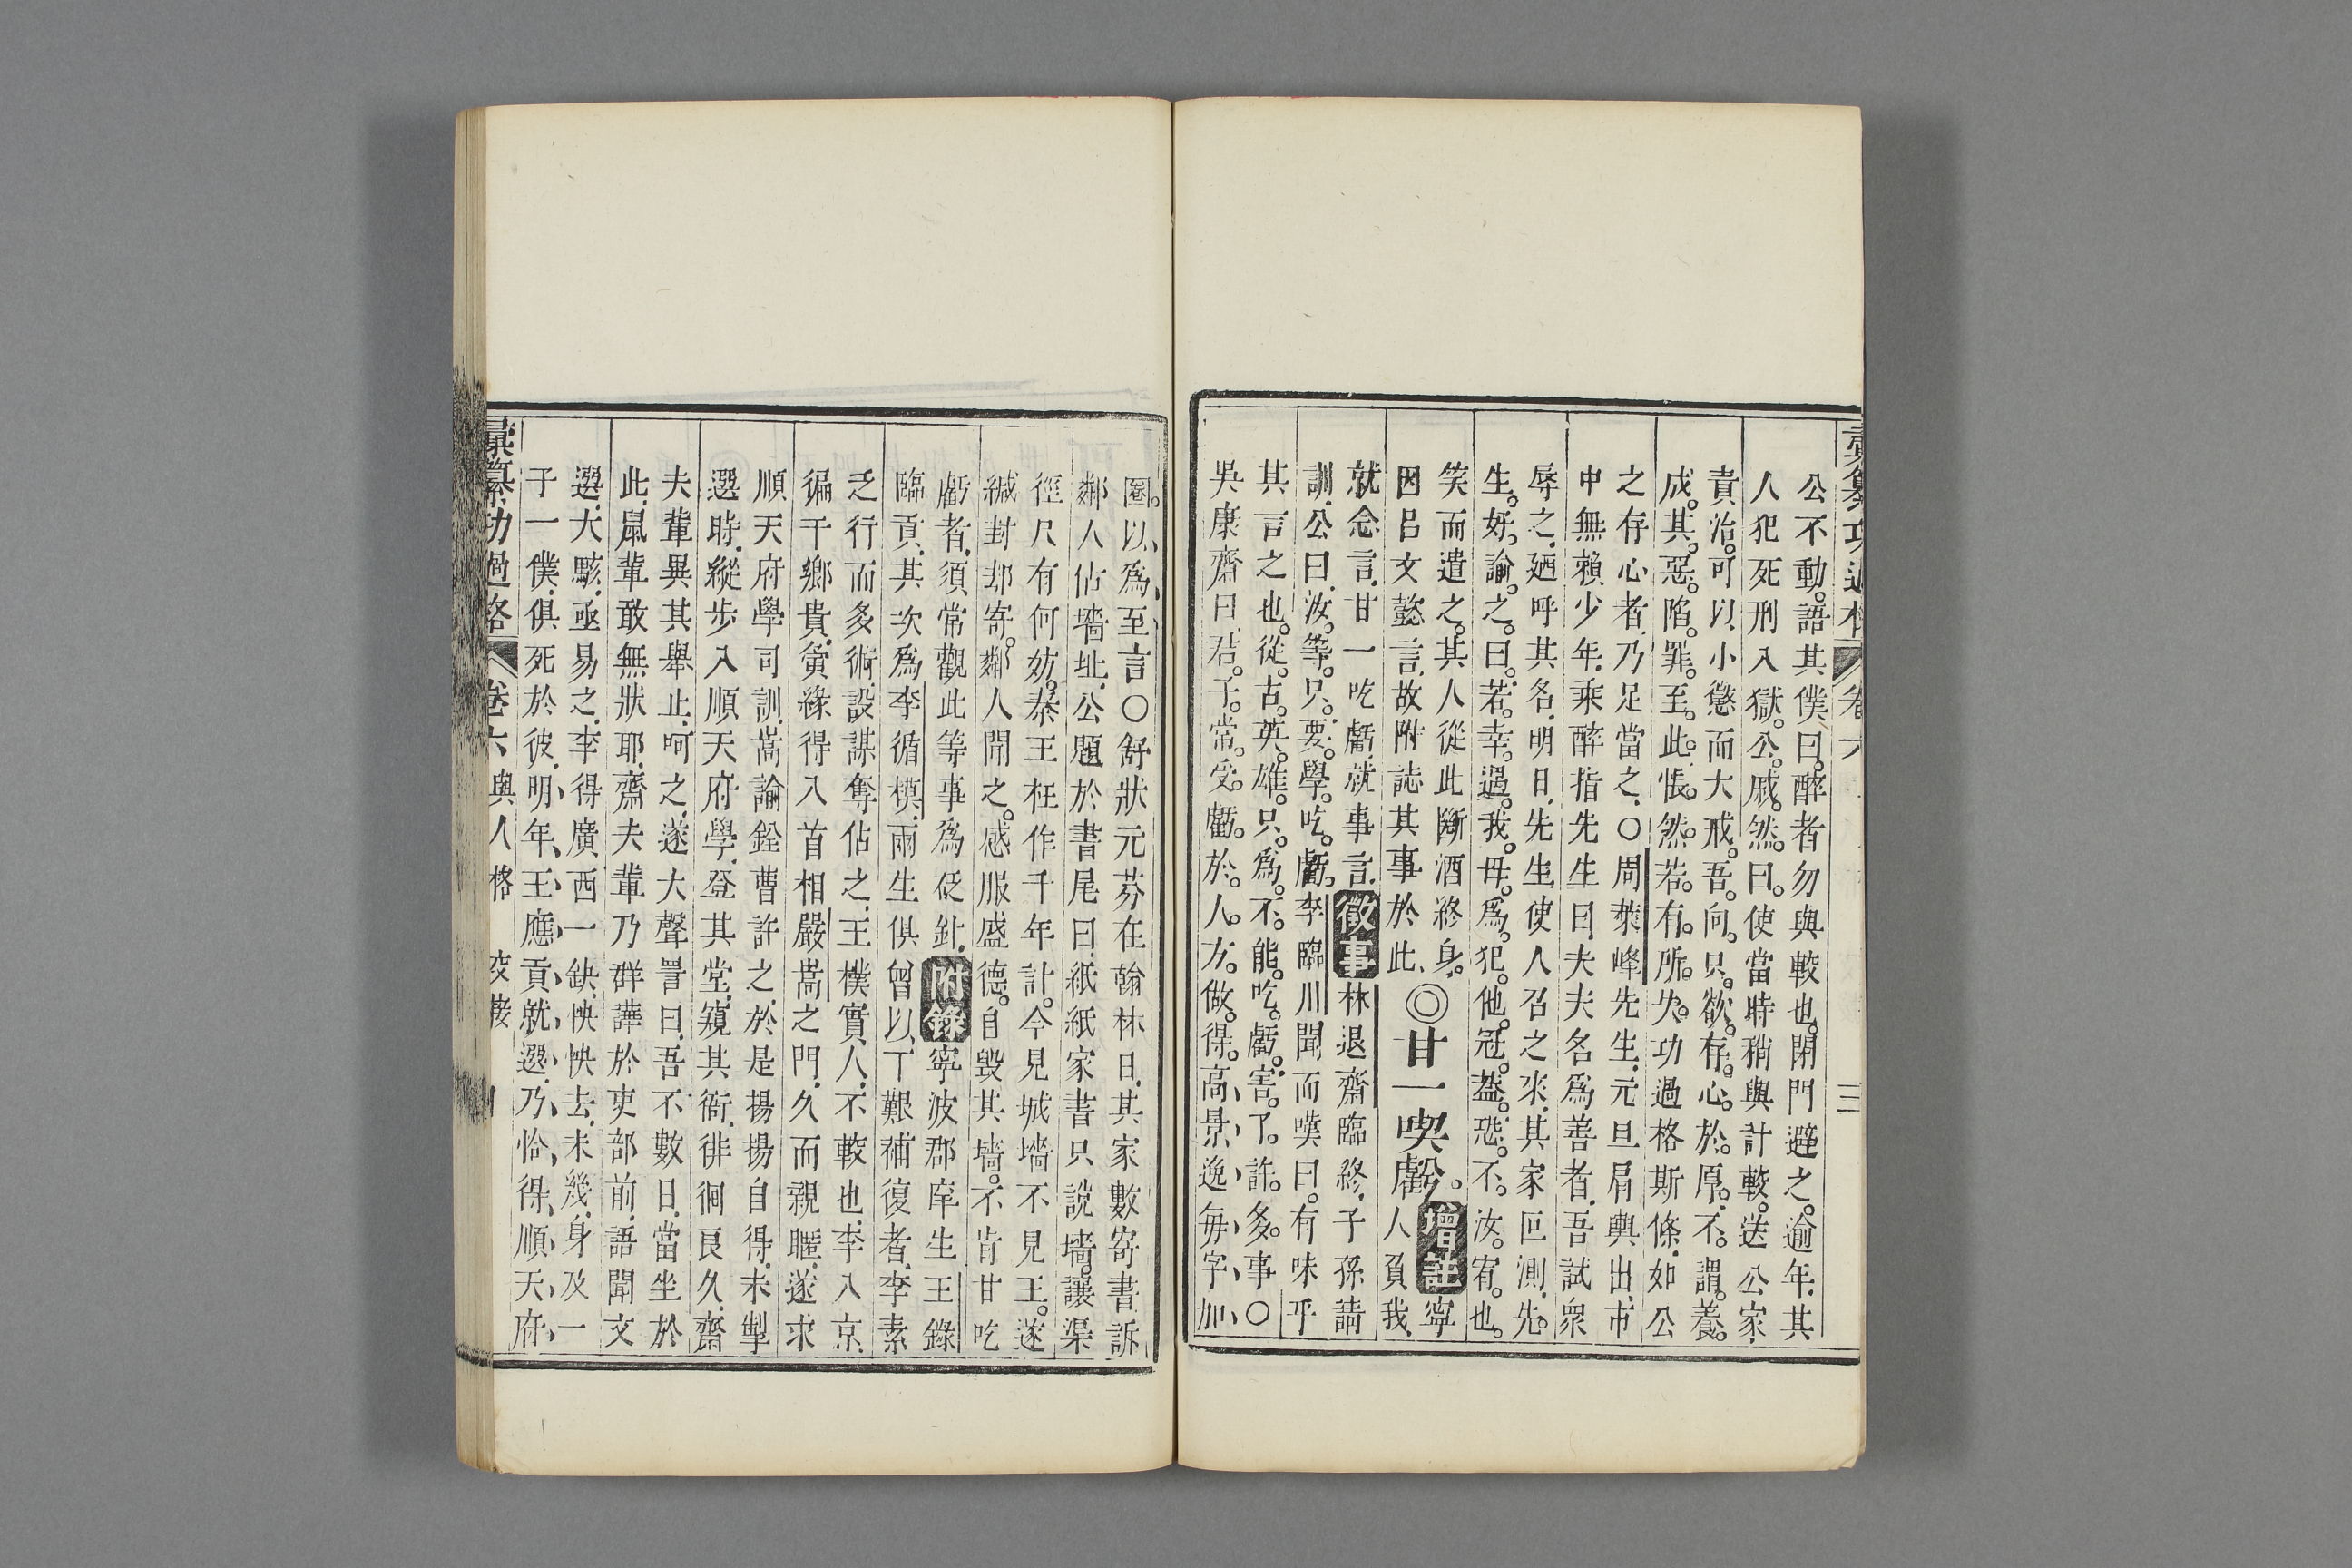 彙纂功過格 卷六 三
公不動。語其僕曰。醉者勿與較也。閉門避之。逾年。其
人犯死刑入獄。公戚然曰。使當時稍與計較。送公家
責治。可以小懲而大戒。吾向只欲存心於厚。不謂養
成其惡。陷罪至此。悵然若有所失。功過格斯條。如公
之存心者。乃足當之。〇周萊峰先生。元旦肩輿出。市
中無賴少年。乘醉指先生曰。夫夫名為善者。吾試衆
辱之。廼呼其名。明日。先生使人召之來。其家叵測。先
生好諭之曰。若幸遇我。毋為犯他冠葢。恐不汝宥也。
笑而遣之。其人從此斷酒終身。◎甘一喫虧。增註 寧
因呂文懿言。故附誌其事於此。人負我
就念言。甘一吃虧就事言。徵事 林退齋臨終。子孫請
訓。公曰。汝等只要學吃虧。李臨川聞而嘆曰。有味乎
其言之也。從古英雄。只為不能吃虧。害了許多事〇
吳康齋曰。君子常受虧於人。方做得。高景逸每字加
圈。以為至言〇舒狀元芬在翰林日。其家數寄書訴
鄰人佔墻址。公題於書尾曰。紙紙家書只說墻。讓渠
徑尺有何妨。秦王枉作千年計。今見城墻不見王。遂
緘封却寄。鄰人聞之。感服盛德。自毀其墻。不肯甘吃
虧者。須常觀此等事為砭針。附錄 寧波郡庠生王錄
臨貢。其次為李循模。兩生俱曾以丁艱補復者。李素
乏行而多術。設謀奪佔之。王樸實人。不較也。李入京。
徧干鄉貴。夤緣得入首相嚴嵩之門。久而親暱。遂求
順天府學司訓。嵩諭銓曹許之。於是揚揚自得。未掣
選時。縱步入順天府學。登其堂。窺其衙。徘徊良久。齋
夫輩異其舉止。呵之。遂大聲詈曰。吾不數日。當坐於
此。鼠輩敢無狀耶。齋夫輩乃群譁於吏部前。語聞文
選。大駭。亟易之。李得廣西一缺。怏怏去。未幾。身及一
子一僕。俱死於彼。明年。王應貢就選。乃恰得順天府
彙纂功過格 卷六 與人格